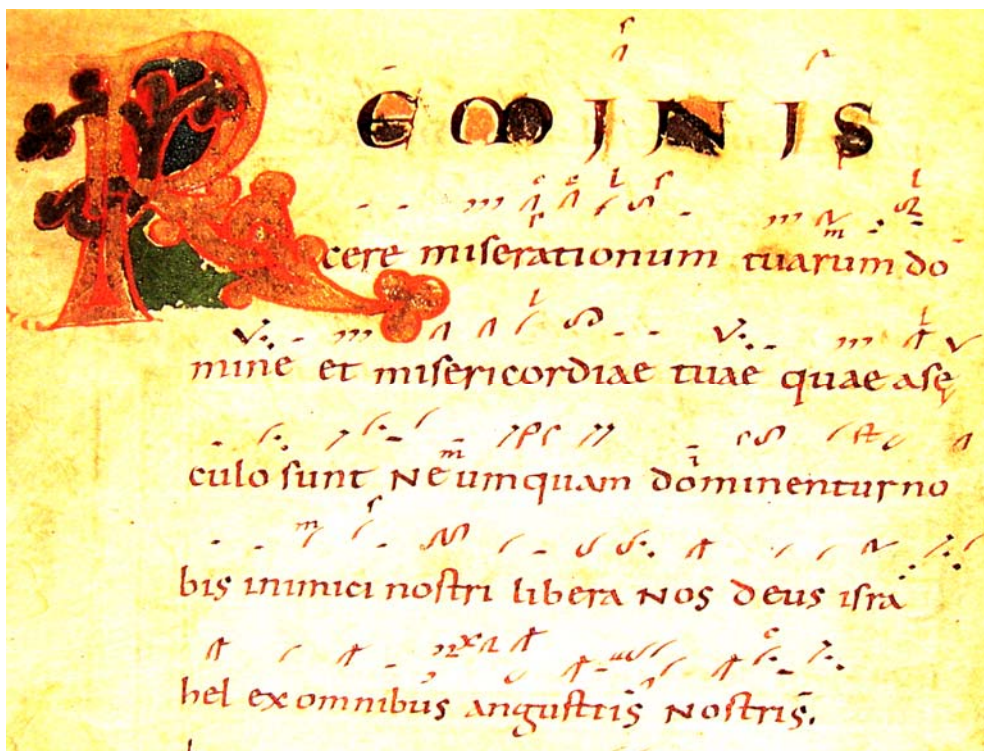 REMINIS
cere miserationum tuarum do
mine et misericordiae tuae quae asę
culo sunt Neumquam dominentur no
bis inimici nostri libera Nos deus isra
hel ex omnibus angustiis Nostris.